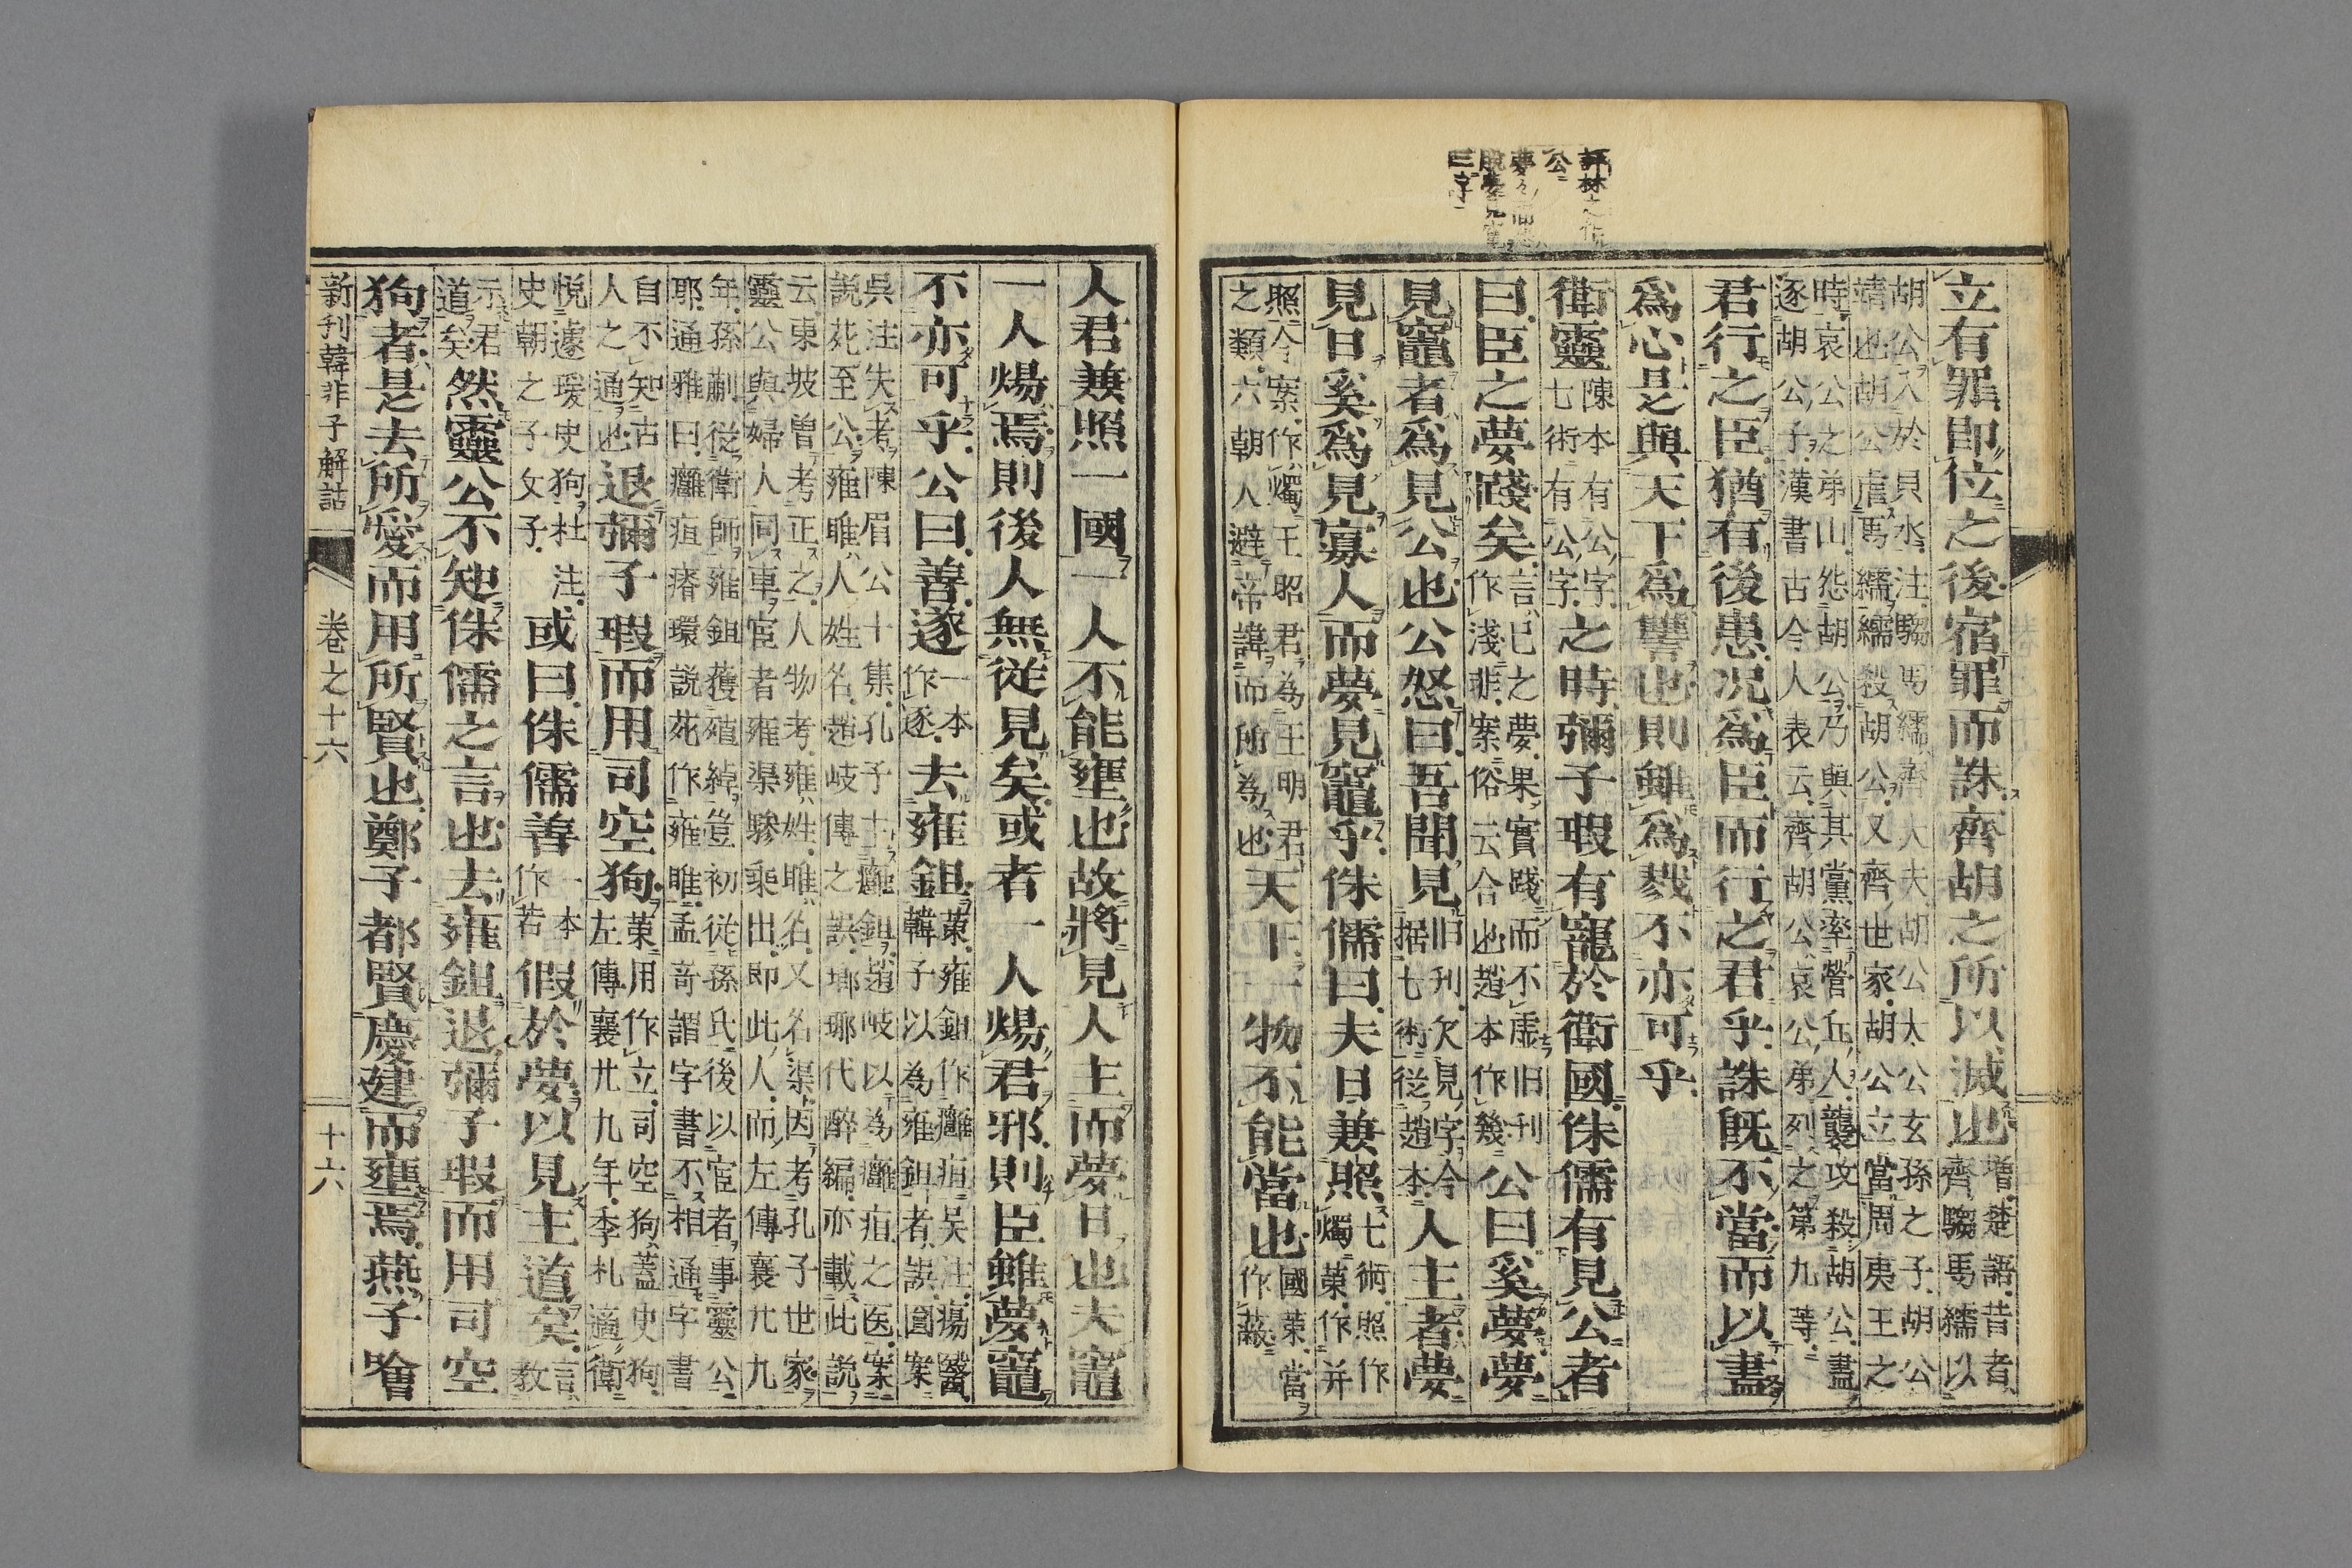 立有罪即位之後宿罪而誅齊胡之所以滅也
増楚語昔者
齊騶馬繻以
胡公入於貝水注騶馬繻齊大夫胡公太公玄孫之子胡公
靖也胡公虐馬繻繻殺胡公又齊世家胡公立當周夷王之
時哀公之弟山怨胡公乃與其黨率營丘人襲攻殺胡公盡
逐胡公子漢書古今人表云齊胡公哀公弟列之第九等
君行之臣猶有後患况爲臣而行之君乎誅既不當而以盡
爲心是與天下爲讐也則雖爲戮不亦可乎
衛靈
陳本有公字
七術有公字
之時彌子瑕有寵於衛國侏儒有見公者
曰臣之夢踐矣
言已之夢果實踐而不虚旧刊
作淺非案俗云合也趙本作幾
公曰奚夢夢
見竈者爲見公也公怒曰吾聞見
旧刊欠見字今
据七術従趙本
人主者夢
見日奚爲見寡人而夢見竈乎侏儒曰夫日兼照
七術照作
燭策作并
照今案作燭王昭君為王明君
之類六朝人避帝諱而所為也
天下一物不能當也
國策當
作蔽
人君兼照一國一人不能壅也故將見人主而夢日也夫竈
一人煬焉則後人無從見矣或者一人煬君邪則臣雖夢竈
不亦可乎公曰善遂
一本
作逐
去雍鉏
策雍鉏作癰疽吴注瘍醫
韓子以為雍鉏者誤圖案
吳注失考陳眉公十集孔子主癰鉏趙岐以為癰疽之医案
説苑至公雍睢人姓名趙岐傳之誤瑯琊代醉編亦載此説
云東坡曽考正之人物考雍姓睢名又名渠因考孔子世家
靈公與婦人同車宦者雍渠驂乗出即此人而左傳襄廿九
年孫蒯従衛師雍鉏獲殖綽豈初従孫氏後以宦者事靈公
耶通雅曰癰疽瘠環説苑作雍睢孟竒謂字書不相通字書
自不知古
人之通也
退彌子瑕而用司空狗
策用作立司空狗蓋史狗
左傳襄廿九年季札適衛
悦遽瑗史狗杜注
史朝之子文子
或曰侏儒善
一本
作若
假於夢以見主道矣
言教
示君
道矣
然靈公不知侏儒之言也去雍鉏退彌子瑕而用司空
狗者是去所愛而用所賢也鄭子都賢慶建而壅焉燕子噲
新刊韓非子解詁
卷之十六
十六